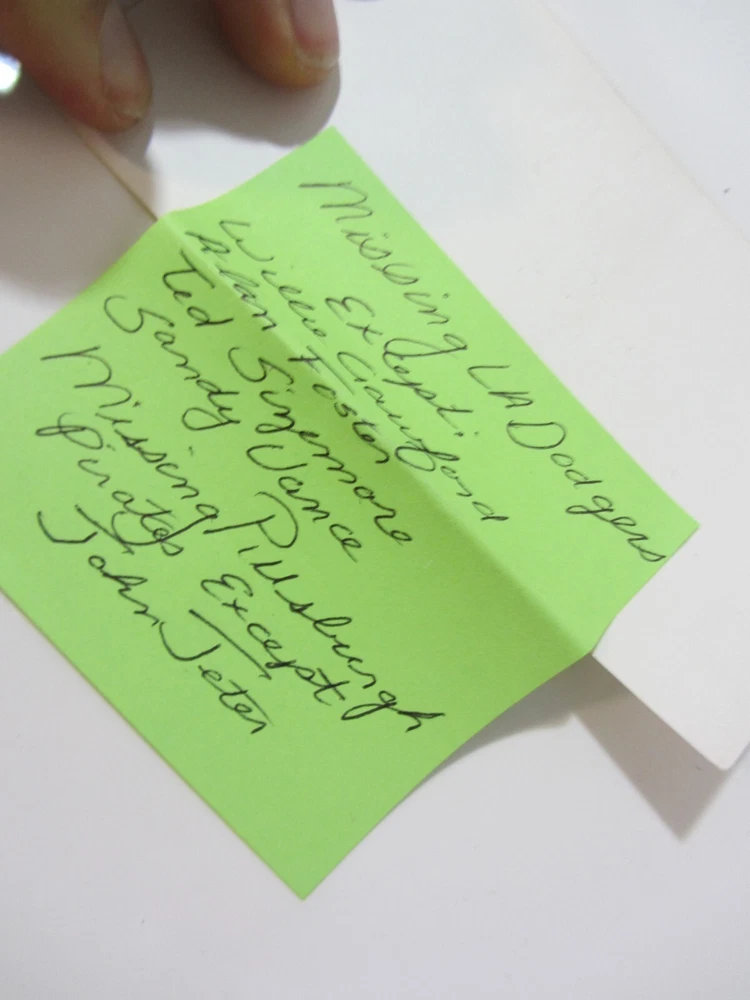 Missing LA Dodgers
Except:
Willie Crawford
Alan Foster
Ted Sizemore
Sandy Vance
Missing Pittsburgh
Pirates Except
John Jeter